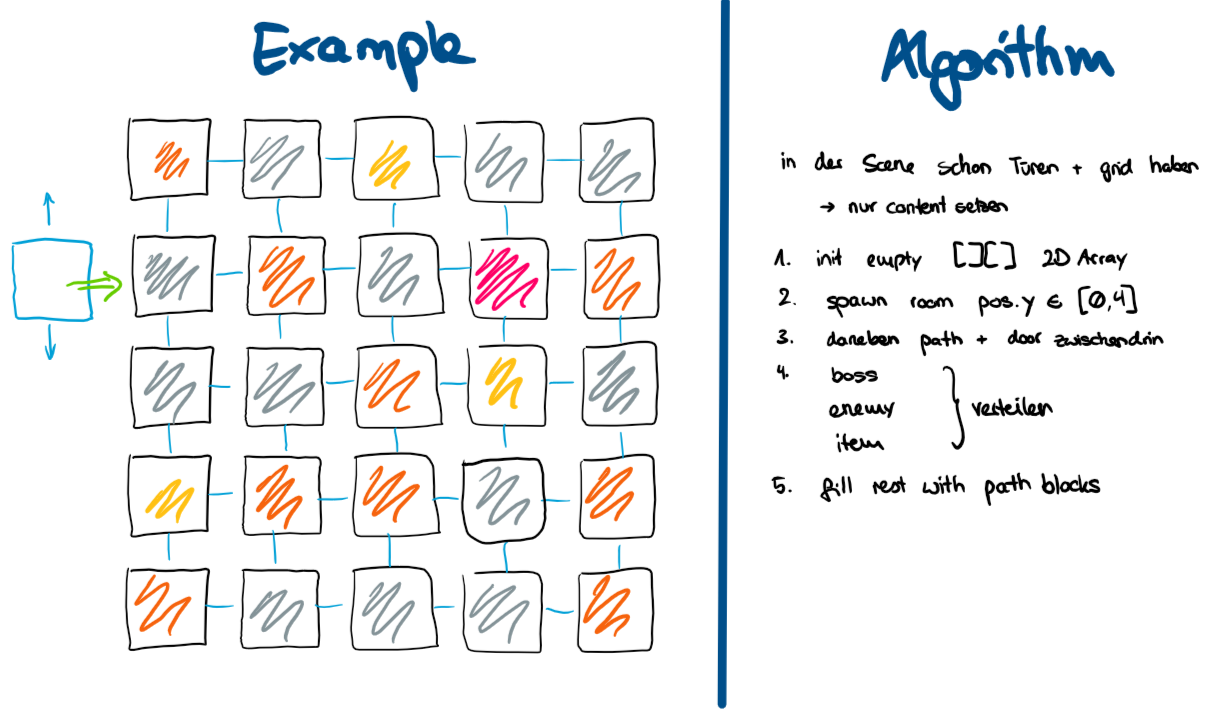 Example
Algorithm
in der Scene schon Türen + grid haben
→ nur content setzen
1. init empty [][] 2D Array
2. spawn room pos.y ∈ [0,4]
3. daneben path + door zwischendrin
4. boss
enemy
item
verteilen
5. fill rest with path blocks